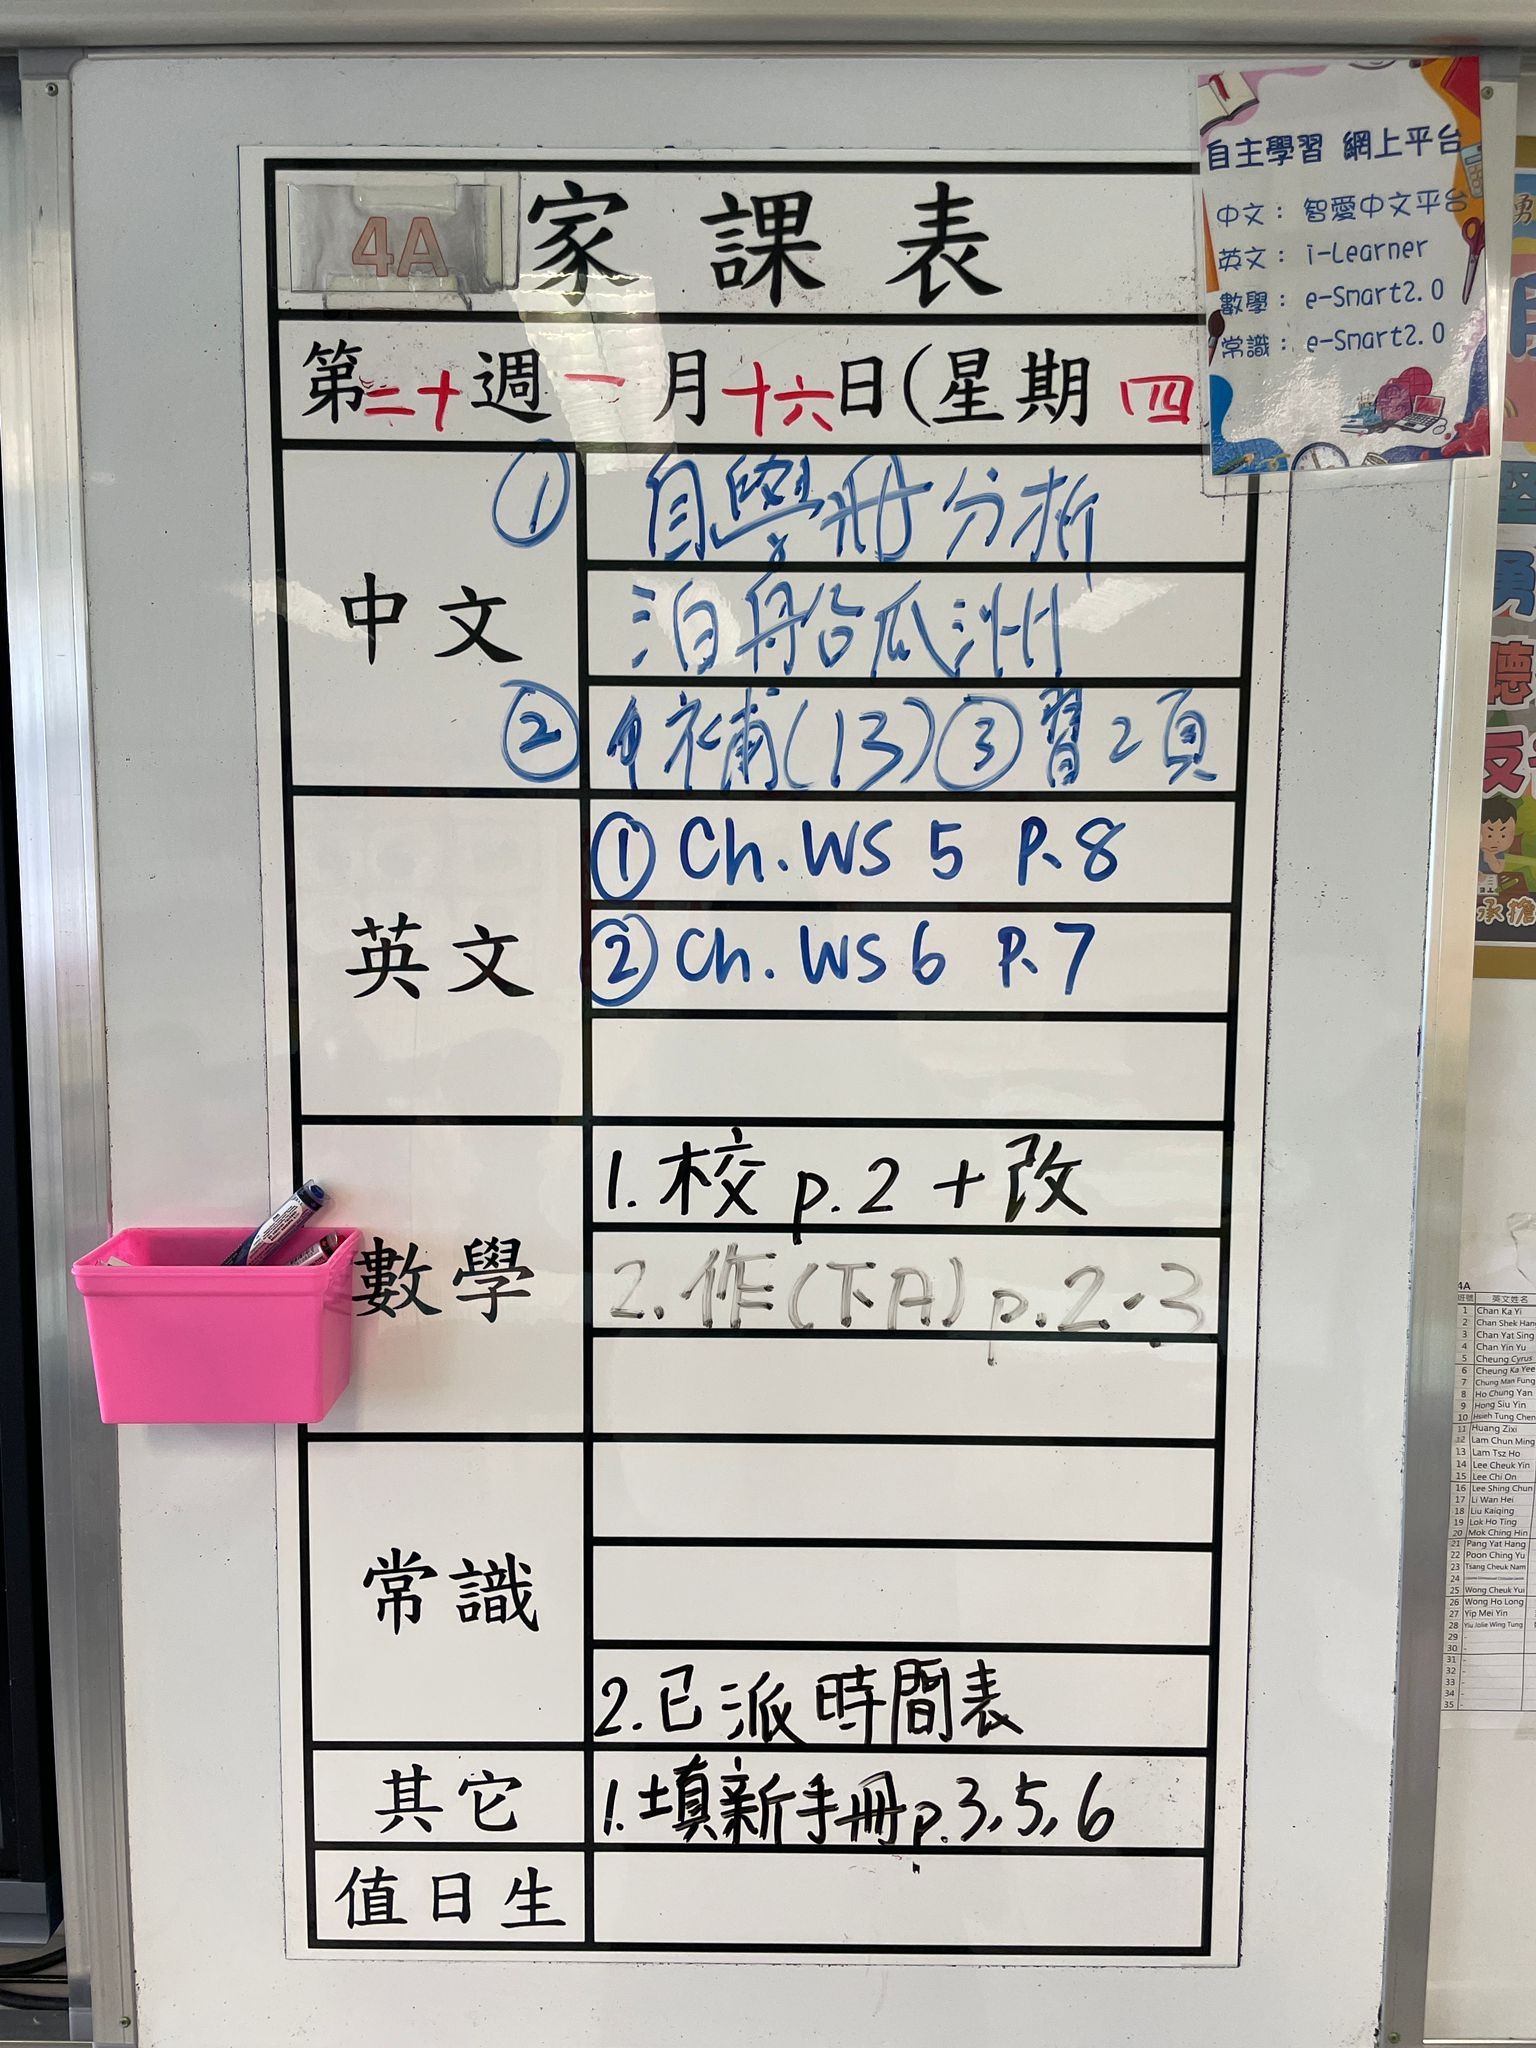 4A 家課表
第二十週一月十六日(星期四
中文
① 自學冊分析
泊船瓜洲
② 補(13)③習2頁
英文
① Ch. WS 5 P.8
② Ch. WS 6 P.7
數學
1. 校 p.2 + 改
2. 作(下A) p.2-3
常識
2. 已派時間表
其它
1. 填新手冊p.3,5,6
值日生
自主學習 網上平台
中文：智愛中文平台
英文：i-Learner
數學：e-Smart2.0
常識：e-Smart2.0
勇
承擔
4A
班號 英文姓名
1 Chan Ka Yi
2 Chan Shek Han
3 Chan Yat Sing
4 Chan Yin Yu
5 Cheung Cyrus
6 Cheung Ka Yee
7 Chung Man Fung
8 Ho Chung Yan
9 Hong Siu Yin
10 Hsieh Tung Chen
11 Huang Zixi
12 Lam Chun Ming
13 Lam Tsz Ho
14 Lee Cheuk Yin
15 Lee Chi On
16 Lee Shing Chun
17 Li Wan Hei
18 Liu Kaiqing
19 Lok Ho Ting
20 Mok Ching Hin
21 Pang Yat Hang
22 Poon Ching Yu
23 Tsang Cheuk Nam
24
25 Wong Cheuk Yui
26 Wong Ho Long
27 Yip Mei Yin
28 Yiu Jolie Wing Tung
29 -
30 -
31 -
32 -
33 -
34 -
35 -